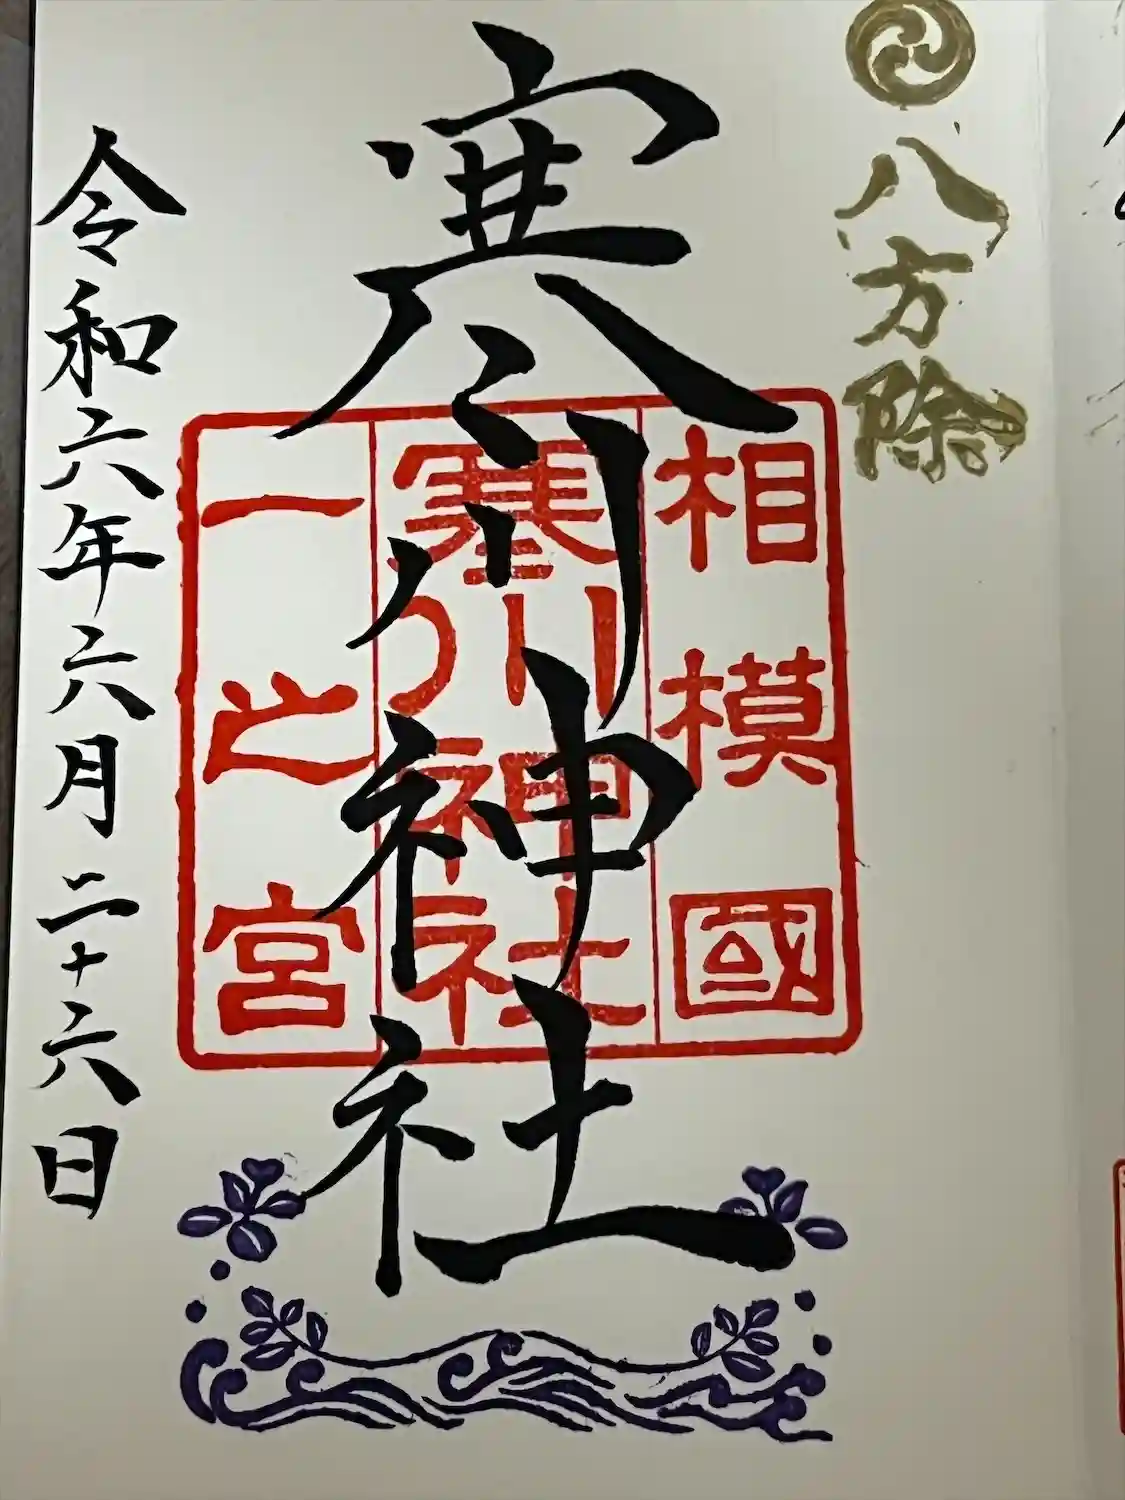 八方除
寒川神社
相模國
寒川神社
一之宮
令和六年六月二十六日